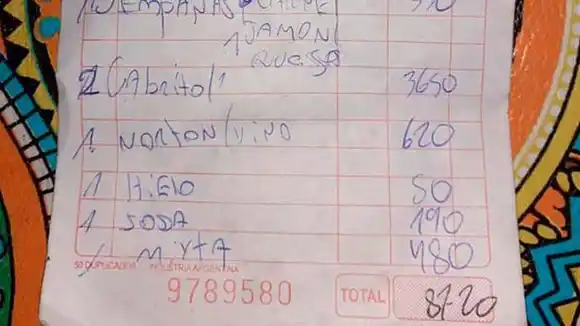 EMPANAS
1 JAMON
QUESO
2 CAbrito 3650
1 NORTON/VINO 620
1 HIELO 50
1 SODA 190
1 MIXTA 480
50 DUPLICADOS INDUSTRIA ARGENTINA
9789580 TOTAL 8720